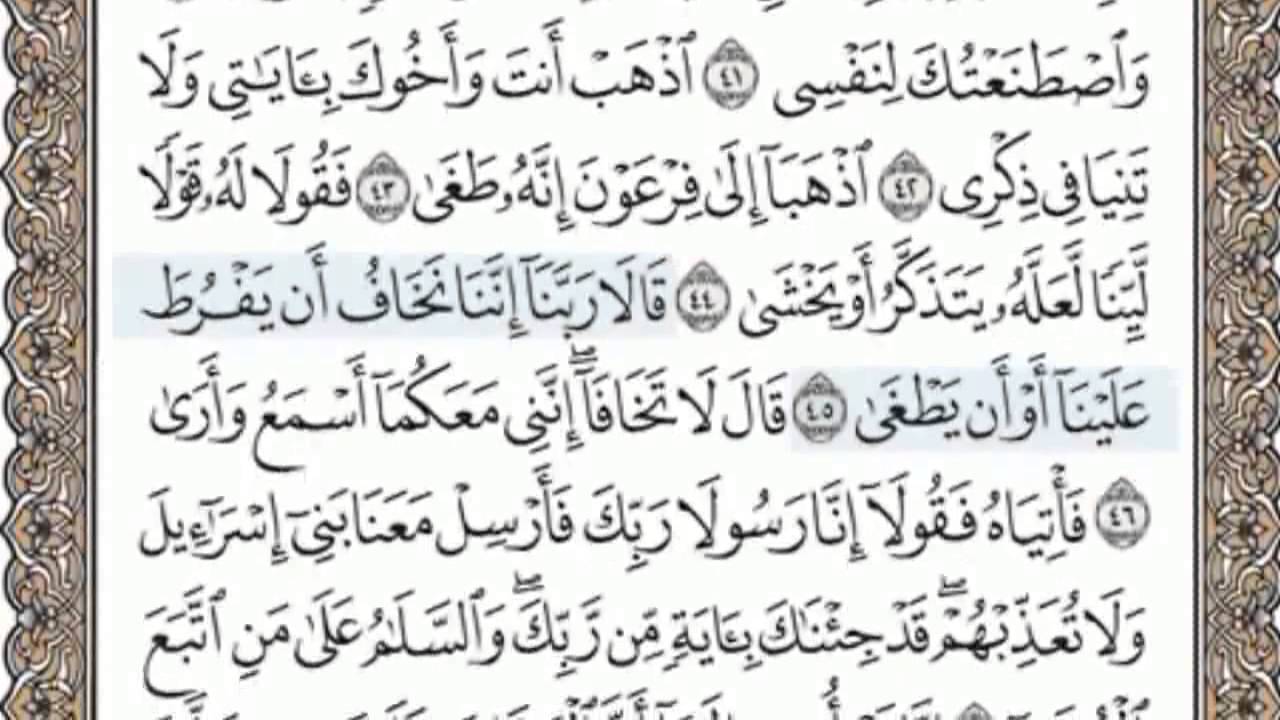 وَٱصۡطَنَعۡتُكَ لِنَفۡسِي ٤١ ٱذۡهَبۡ أَنتَ وَأَخُوكَ بِـَٔايَٰتِي وَلَا
تَنِيَا فِي ذِكۡرِي ٤٢ ٱذۡهَبَآ إِلَىٰ فِرۡعَوۡنَ إِنَّهُۥ طَغَىٰ ٤٣ فَقُولَا لَهُۥ قَوۡلٗا
لَّيِّنٗا لَّعَلَّهُۥ يَتَذَكَّرُ أَوۡ يَخۡشَىٰ ٤٤ قَالَا رَبَّنَآ إِنَّنَا نَخَافُ أَن يَفۡرُطَ
عَلَيۡنَآ أَوۡ أَن يَطۡغَىٰ ٤٥ قَالَ لَا تَخَافَآۖ إِنَّنِي مَعَكُمَآ أَسۡمَعُ وَأَرَىٰ
٤٦ فَأۡتِيَاهُ فَقُولَآ إِنَّا رَسُولَا رَبِّكَ فَأَرۡسِلۡ مَعَنَا بَنِيٓ إِسۡرَٰٓءِيلَ
وَلَا تُعَذِّبۡهُمۡۖ قَدۡ جِئۡنَٰكَ بِـَٔايَةٖ مِّن رَّبِّكَۖ وَٱلسَّلَٰمُ عَلَىٰ مَنِ ٱتَّبَعَ